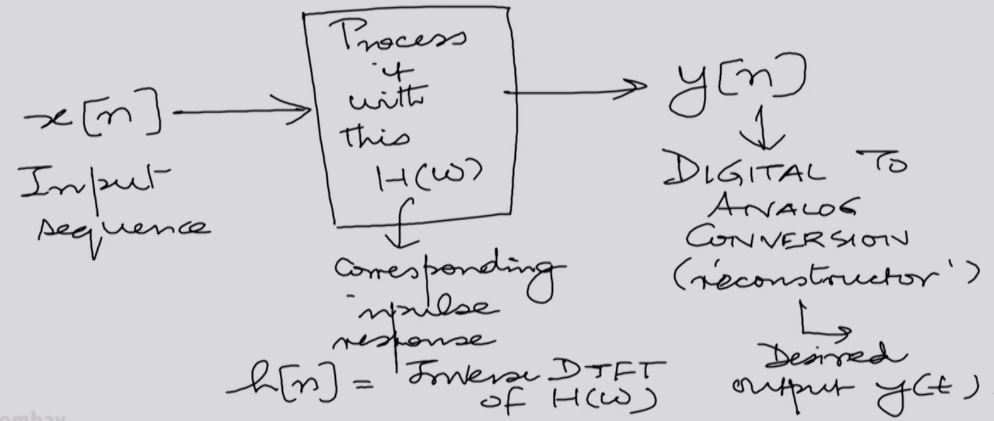 x[n]
Input
sequence
Process
it
with
this
H(ω)
corresponding
impulse
response
h[n] = Inverse DTFT
of H(ω)
y[n]
DIGITAL TO
ANALOG
CONVERSION
('reconstructor')
Desired
output y(t)
ombay